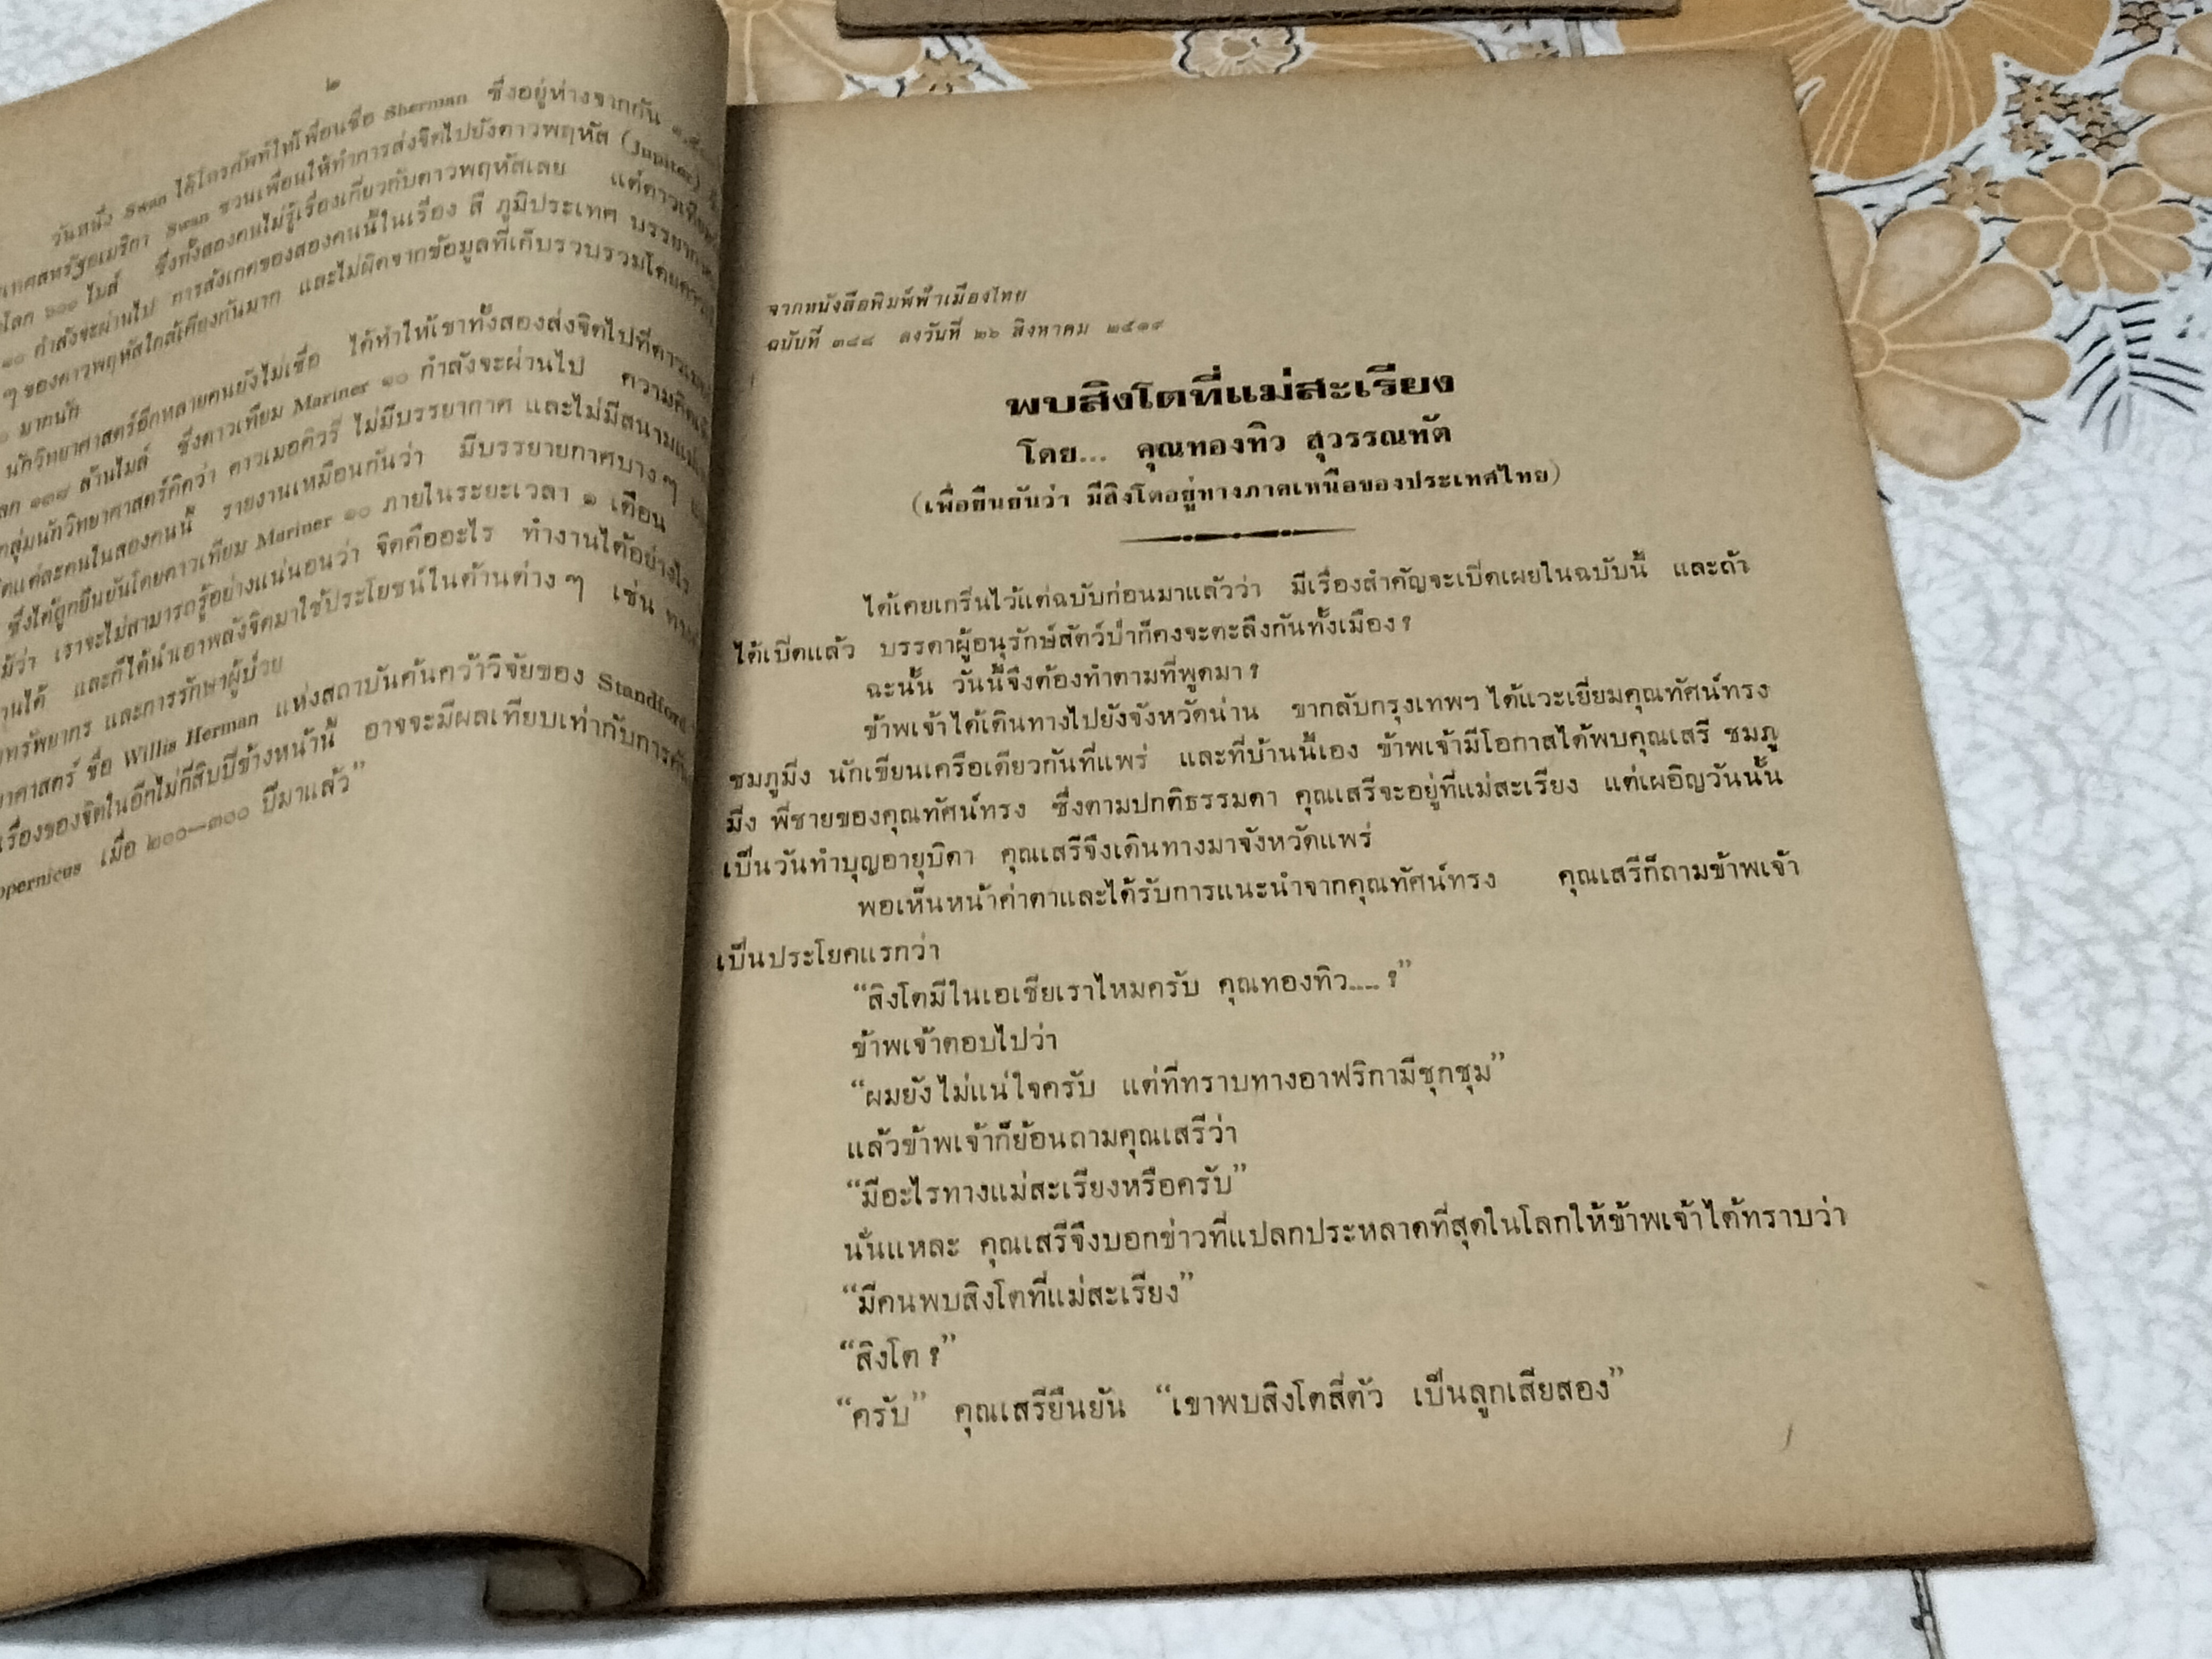 ๒
วันหนึ่ง Swan ได้โทรศัพท์ให้เพื่อนชื่อ Sherman ซึ่งอยู่ห่างจากกัน
Swan ชวนเพื่อนให้ทำการส่งจิตไปยังดาวพฤหัส (Jupiter)
โลก ๖๐๐ ไมล์ ซึ่งทั้งสองคนไม่รู้เรื่องเกี่ยวกับดาวพฤหัสเลย แต่ดาวเทียม
๑๐ กำลังจะผ่านไป การสังเกตของสองคนนี้ในเรื่อง สี ภูมิประเทศ บรรยากาศ
ๆ ของดาวพฤหัสใกล้เคียงกันมาก และไม่ผิดจากข้อมูลที่เก็บรวบรวมโดย
มากนัก
นักวิทยาศาสตร์อีกหลายคนยังไม่เชื่อ ได้ทำให้เขาทั้งสองส่งจิตไปที่ดาว
ล้านไมล์ ซึ่งดาวเทียม Mariner ๑๐ กำลังจะผ่านไป ความคิด
กลุ่มนักวิทยาศาสตร์คิดว่า ดาวเมอคิวรี ไม่มีบรรยากาศ และไม่มีสนาม
แต่ละคนในสองคนนี้ รายงานเหมือนกันว่า มีบรรยายกาศบาง ๆ
ซึ่งได้ถูกยืนยันโดยดาวเทียม Mariner ๑๐ ภายในระยะเวลา ๑ เดือน
ว่า เราจะไม่สามารถรู้อย่างแน่นอนว่า จิตคืออะไร ทำงานได้อย่างไร
และก็ได้นำเอาพลังจิตมาใช้ประโยชน์ในด้านต่าง ๆ เช่น
ทรัพยากร และการรักษาผู้ป่วย
ชื่อ Willis Herman แห่งสถาบันค้นคว้าวิจัยของ Standford
เรื่องของจิตในอีกไม่กี่สิบปีข้างหน้านี้ อาจจะมีผลเทียบเท่ากับการ
เมื่อ ๒๐๐—๓๐๐ ปีมาแล้ว”
จากหนังสือพิมพ์ฟ้าเมืองไทย
ฉบับที่ ๓๘๘ ลงวันที่ ๒๖ สิงหาคม ๒๕๑๙
พบสิงโตที่แม่สะเรียง
โดย... คุณทองทิว สุวรรณทัต
(เพื่อยืนยันว่า มีสิงโตอยู่ทางภาคเหนือของประเทศไทย)
ได้เคยเกริ่นไว้แต่ฉบับก่อนมาแล้วว่า มีเรื่องสำคัญจะเปิดเผยในฉบับนี้ และถ้า
ได้เปิดแล้ว บรรดาผู้อนุรักษ์สัตว์ป่าก็คงจะตะลึงกันทั้งเมือง !
ฉะนั้น วันนี้จึงต้องทำตามที่พูดมา !
ข้าพเจ้าได้เดินทางไปยังจังหวัดน่าน ขากลับกรุงเทพฯ ได้แวะเยี่ยมคุณทัศน์ทรง
ชมภูมิ่ง นักเขียนเครือเดียวกันที่แพร่ และที่บ้านนี้เอง ข้าพเจ้ามีโอกาสได้พบคุณเสรี ชมภู
มิ่ง พี่ชายของคุณทัศน์ทรง ซึ่งตามปกติธรรมดา คุณเสรีจะอยู่ที่แม่สะเรียง แต่เผอิญวันนั้น
เป็นวันทำบุญอายุบิดา คุณเสรีจึงเดินทางมาจังหวัดแพร่
พอเห็นหน้าค่าตาและได้รับการแนะนำจากคุณทัศน์ทรง คุณเสรีก็ถามข้าพเจ้า
เป็นประโยคแรกว่า
“สิงโตมีในเอเซียเราไหมครับ คุณทองทิว.... ?”
ข้าพเจ้าตอบไปว่า
“ผมยังไม่แน่ใจครับ แต่ที่ทราบทางอาฟริกามีชุกชุม”
แล้วข้าพเจ้าก็ย้อนถามคุณเสรีว่า
“มีอะไรทางแม่สะเรียงหรือครับ”
นั่นแหละ คุณเสรีจึงบอกข่าวที่แปลกประหลาดที่สุดในโลกให้ข้าพเจ้าได้ทราบว่า
“มีคนพบสิงโตที่แม่สะเรียง”
“สิงโต ?”
“ครับ” คุณเสรียืนยัน “เขาพบสิงโตสี่ตัว เป็นลูกเสียสอง”